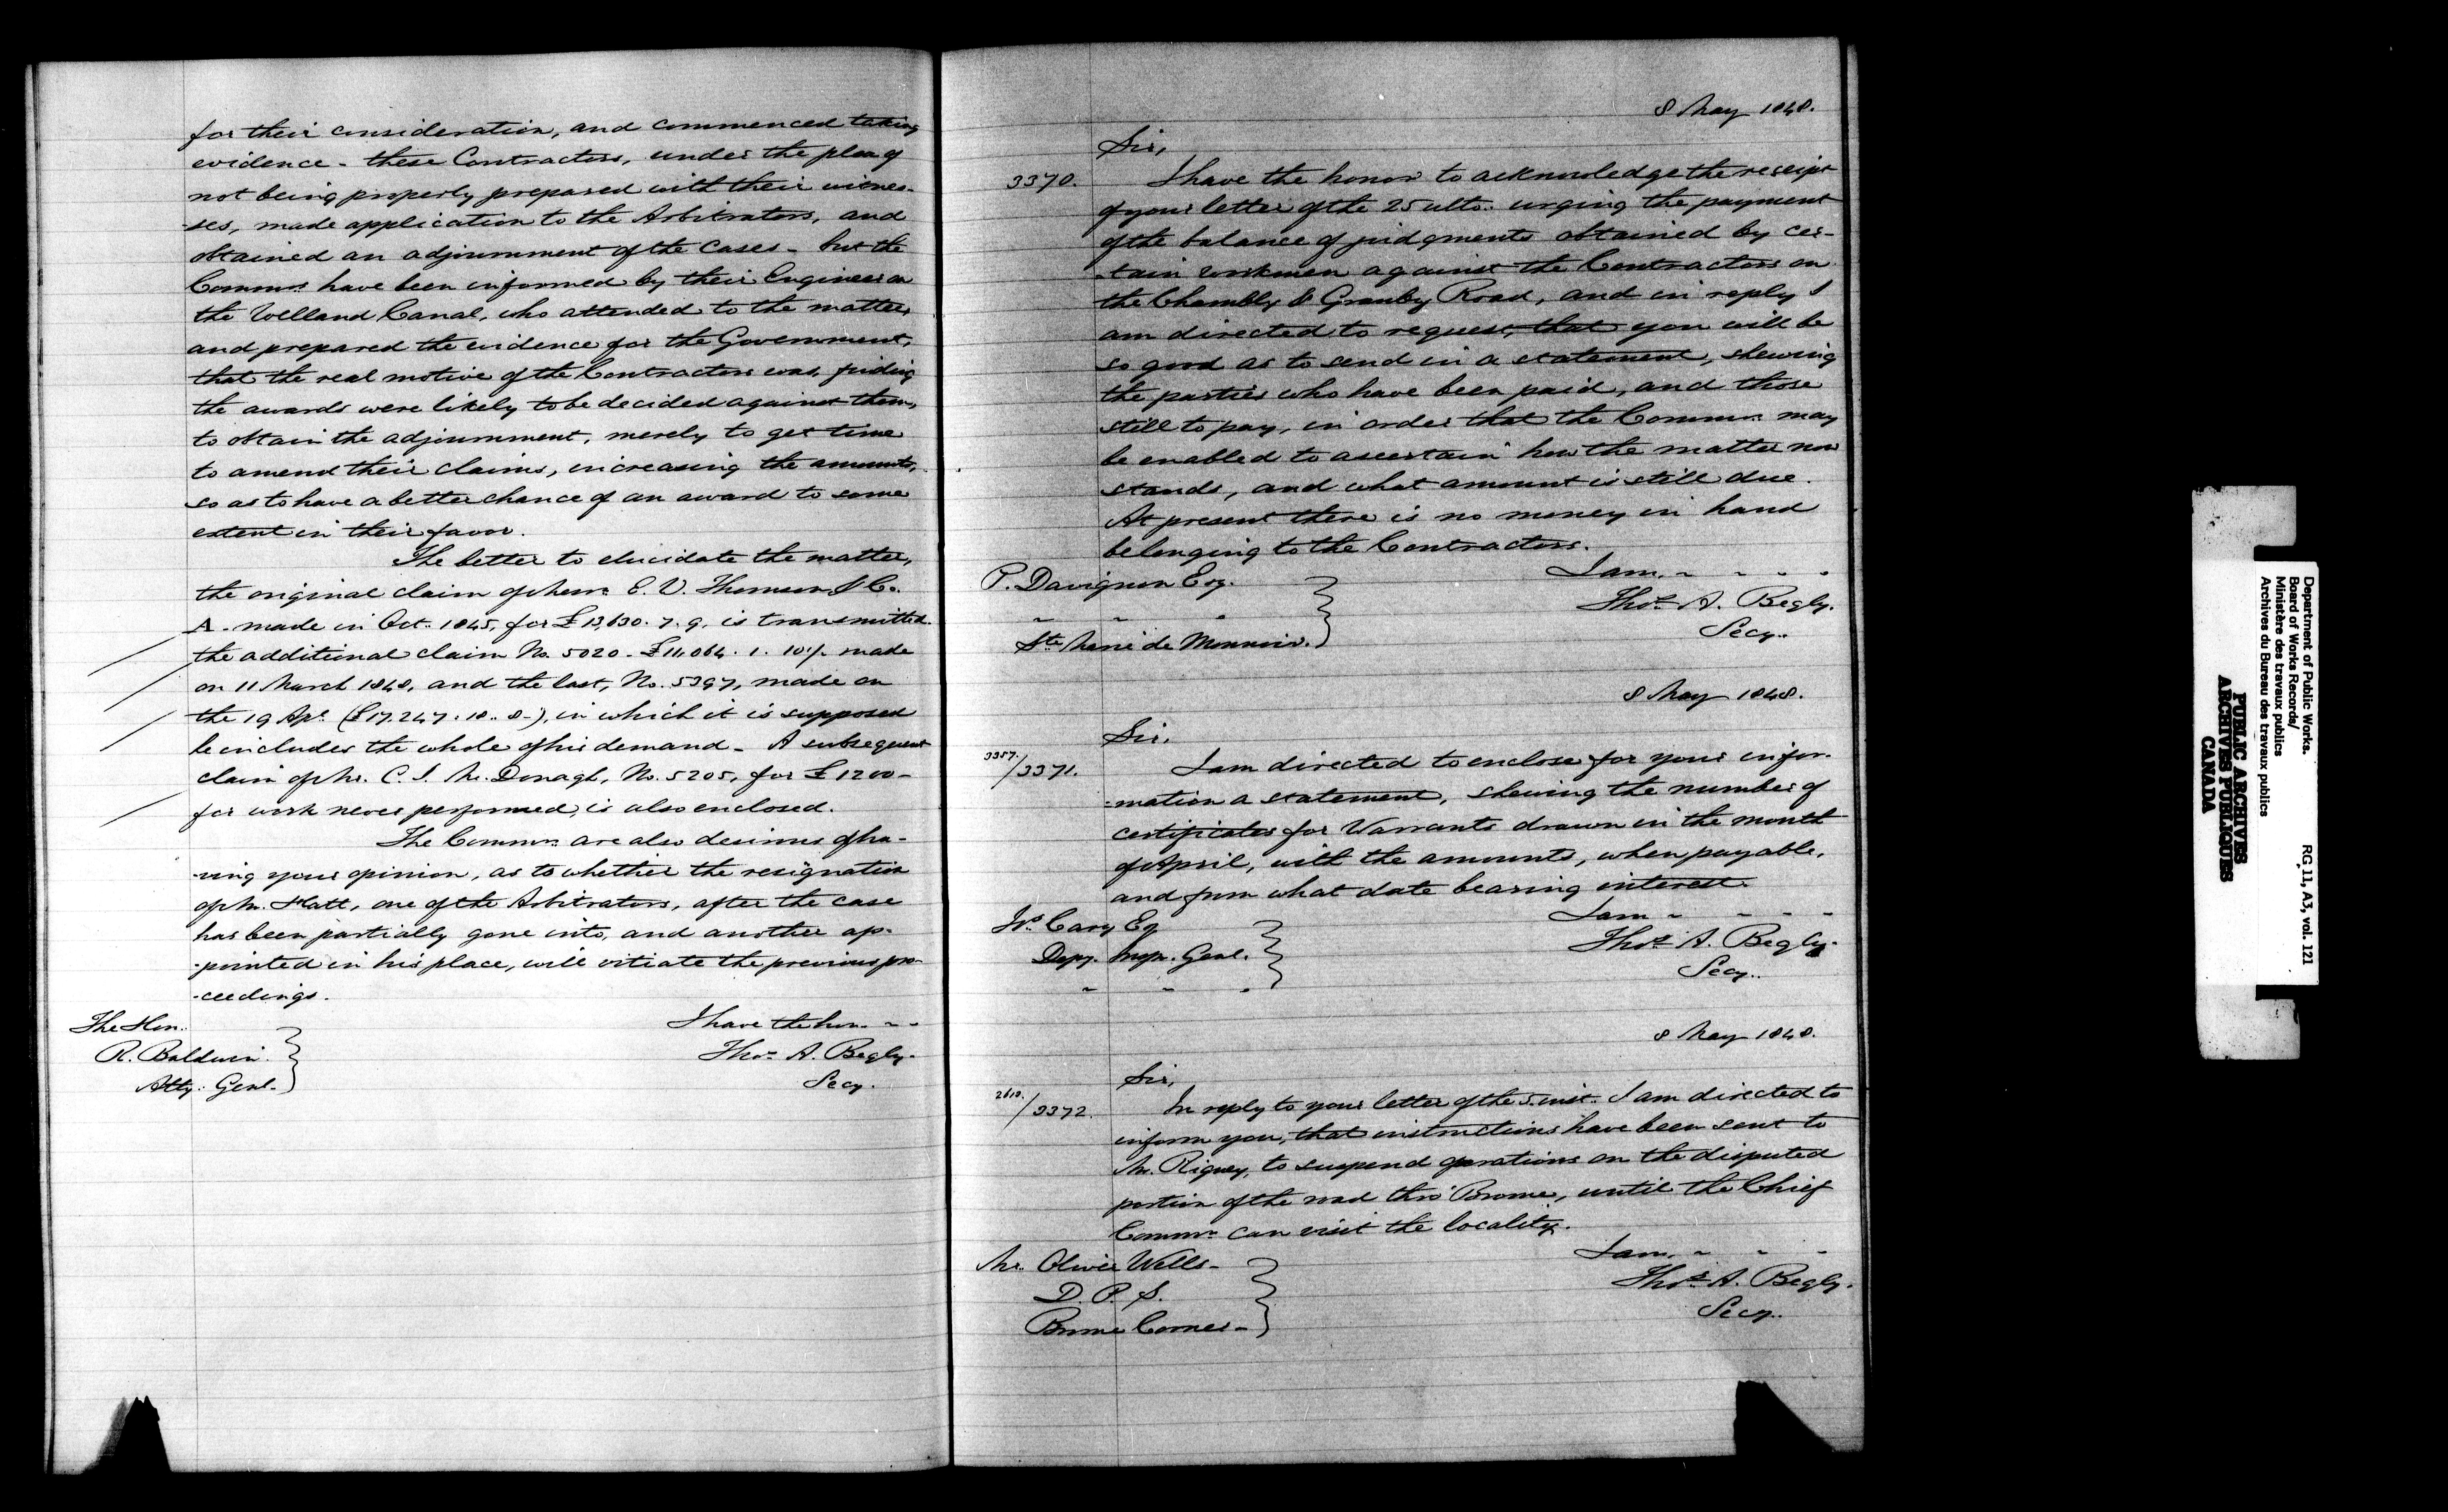 for their consideration, and commenced taking
evidence - these Contractors, under the plea of
not being properly prepared with their witnes-
-ses, made application to the Arbitrators, and
obtained an adjournment of the Cases - but the
Commrs. have been informed by their Engineer on
the Welland Canal, who attended to the matter,
and prepared the evidence for the Government,
that the real motive of the Contractors was, finding
the awards were likely to be decided against them,
to obtain the adjournment, merely to get time
to amend their claims, increasing the amounts,
so as to have a better chance of an award to some
extent in their favor.
The better to elucidate the matter,
the original claim of Messrs. E. V. Thomson & Co.
A - made in Oct. 1845, for £13,630. 7. 9, is transmitted
the additional claim No. 5020 - £11,064. 1. 10½ made
on 11 March 1848, and the last, No. 5397, made on
the 19 Apl. (£17,247. 18. 8 -), in which it is supposed
he includes the whole of his demand - A subsequent
claim of Mr. C. S. McDonagh, No. 5205, for £1200 -
for work never performed, is also enclosed.
The Commrs. are also desirous of ha-
-ving your opinion, as to whether the resignation
of Mr. Hatt, one of the Arbitrators, after the case
has been partially gone into, and another ap-
-pointed in his place, will vitiate the previous pro-
-ceedings.
The Hon. I have the hon. - -
R. Baldwin. Thos. A. Begly.
Atty. Genl. Secy.
8 May 1848.
Sir,
3370. I have the honor to acknowledge the receipt
of your letter of the 25 ulto. urging the payment
of the balance of judgments obtained by cer-
-tain workmen against the Contractors on
the Chambly & Granby Road, and in reply I
am directed to request, that you will be
so good as to send in a statement, shewing
the parties who have been paid, and those
still to pay, in order that the Commrs. may
be enabled to ascertain how the matter now
stands, and what amount is still due.
At present there is no money in hand
belonging to the Contractors.
I am, - - - -
P. Davignon Esq. Thos. A. Begly.
" " " Secy.
Ste. Marie de Monnoir.
8 May 1848.
Sir,
3357./3371. I am directed to enclose for your infor-
-mation a statement, shewing the number of
certificates for Warrants drawn in the month
of April, with the amounts, when payable,
and from what date bearing interest.
I am - - - -
Js. Cary Esq Thos. A. Begly.
Depy. Inspr. Genl. Secy.
" " "
8 May 1848.
Sir,
2610./3372. In reply to your letter of the 5 inst. I am directed to
inform you, that instructions have been sent to
Mr. Rigney, to suspend operations on the disputed
portion of the road thro' Brome, until the Chief
Commr. can visit the locality.
I am, - - -
Mr. Oliver Wells - Thos. A. Begly.
D. P. S. Secy.
Brome Corner -
Department of Public Works.
Board of Works Records/
Ministère des travaux publics
Archives du Bureau des travaux publics
RG 11, A3, vol. 121
PUBLIC ARCHIVES
ARCHIVES PUBLIQUES
CANADA